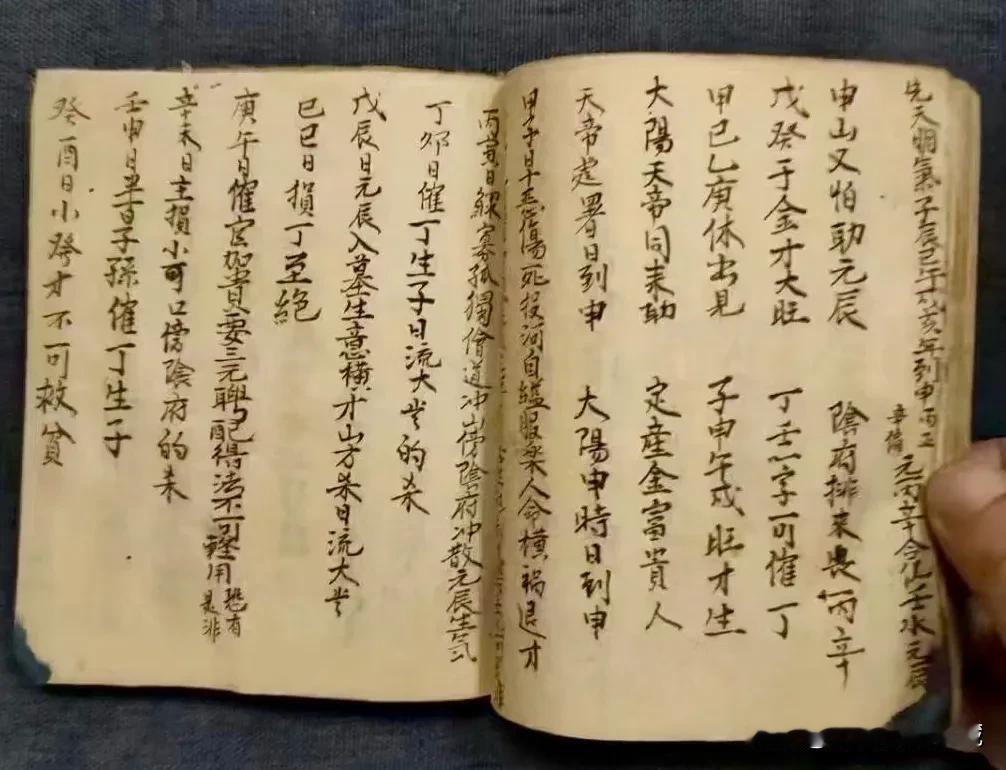 先天胡氣子辰己午戌亥年到申丙 元丙辛合化壬水元辰
申山又怕助元辰 陰府排來畏丙辛
戊癸于金才大旺 丁壬一字可催丁
甲己乙庚休出見 子申午戌旺才生
大陽天帝同来助 定産金富貴人
天帝定署日到申 大陽申時日到申
甲子日 傷死投河自縊服藥人命横禍退才
丙寅日鰥寡孤獨僧道冲山傍陰府冲散元辰生气
丁夘日催丁生子日流大 的杀
戊辰日元辰入墓生意横才山方杀日流大
己巳日損丁至絕
庚午日催官加貴要三元聘配得法不可輕用恐有是非
辛未日主損小可口傍陰府的未
壬申日 子孫催丁生子
癸酉日小發才不可救貧